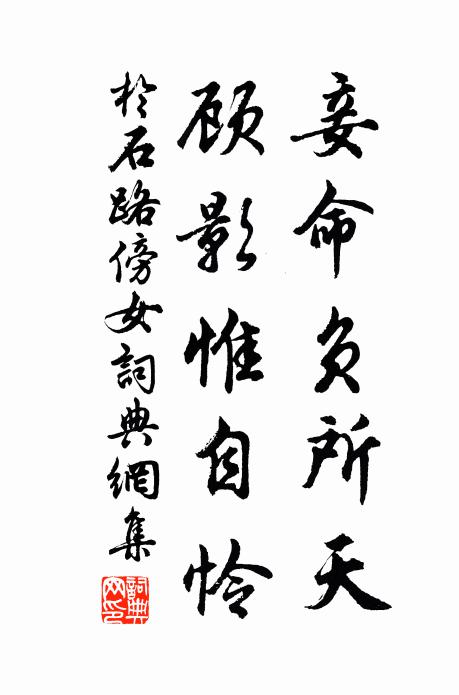 妾命负所天
顾影惟自怜
於石路傍女詞典網集
詞典网印